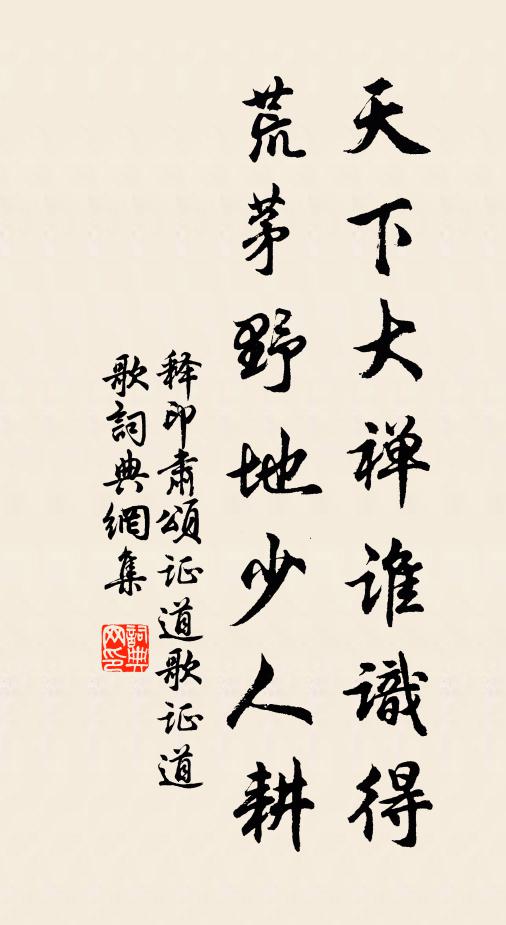 天下大禅谁識得
荒茅野地少人耕
释印肃頌证道歌证道
歌詞典網集
詞典
网印